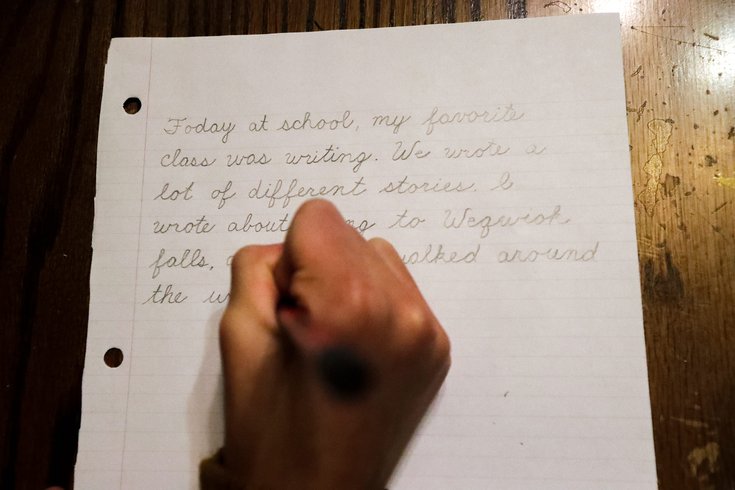 Today at school, my favorite
class was writing. We wrote a
lot of different stories. I
wrote about to
falls, walked around
the